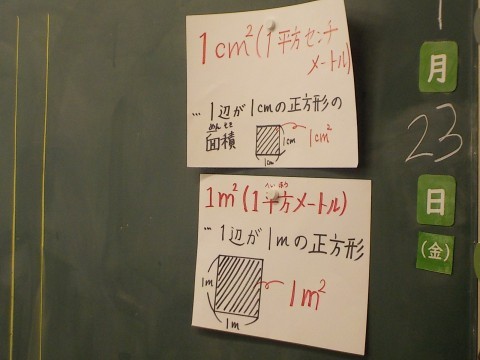 1cm²(1平方センチ
メートル)
…1辺が1cmの正方形の
めんせき
面積
1cm
1cm²
1cm
1m²(1平方メートル)
へいほう
…1辺が1mの正方形
1m
1m²
1m
1
月
23
日
(金)